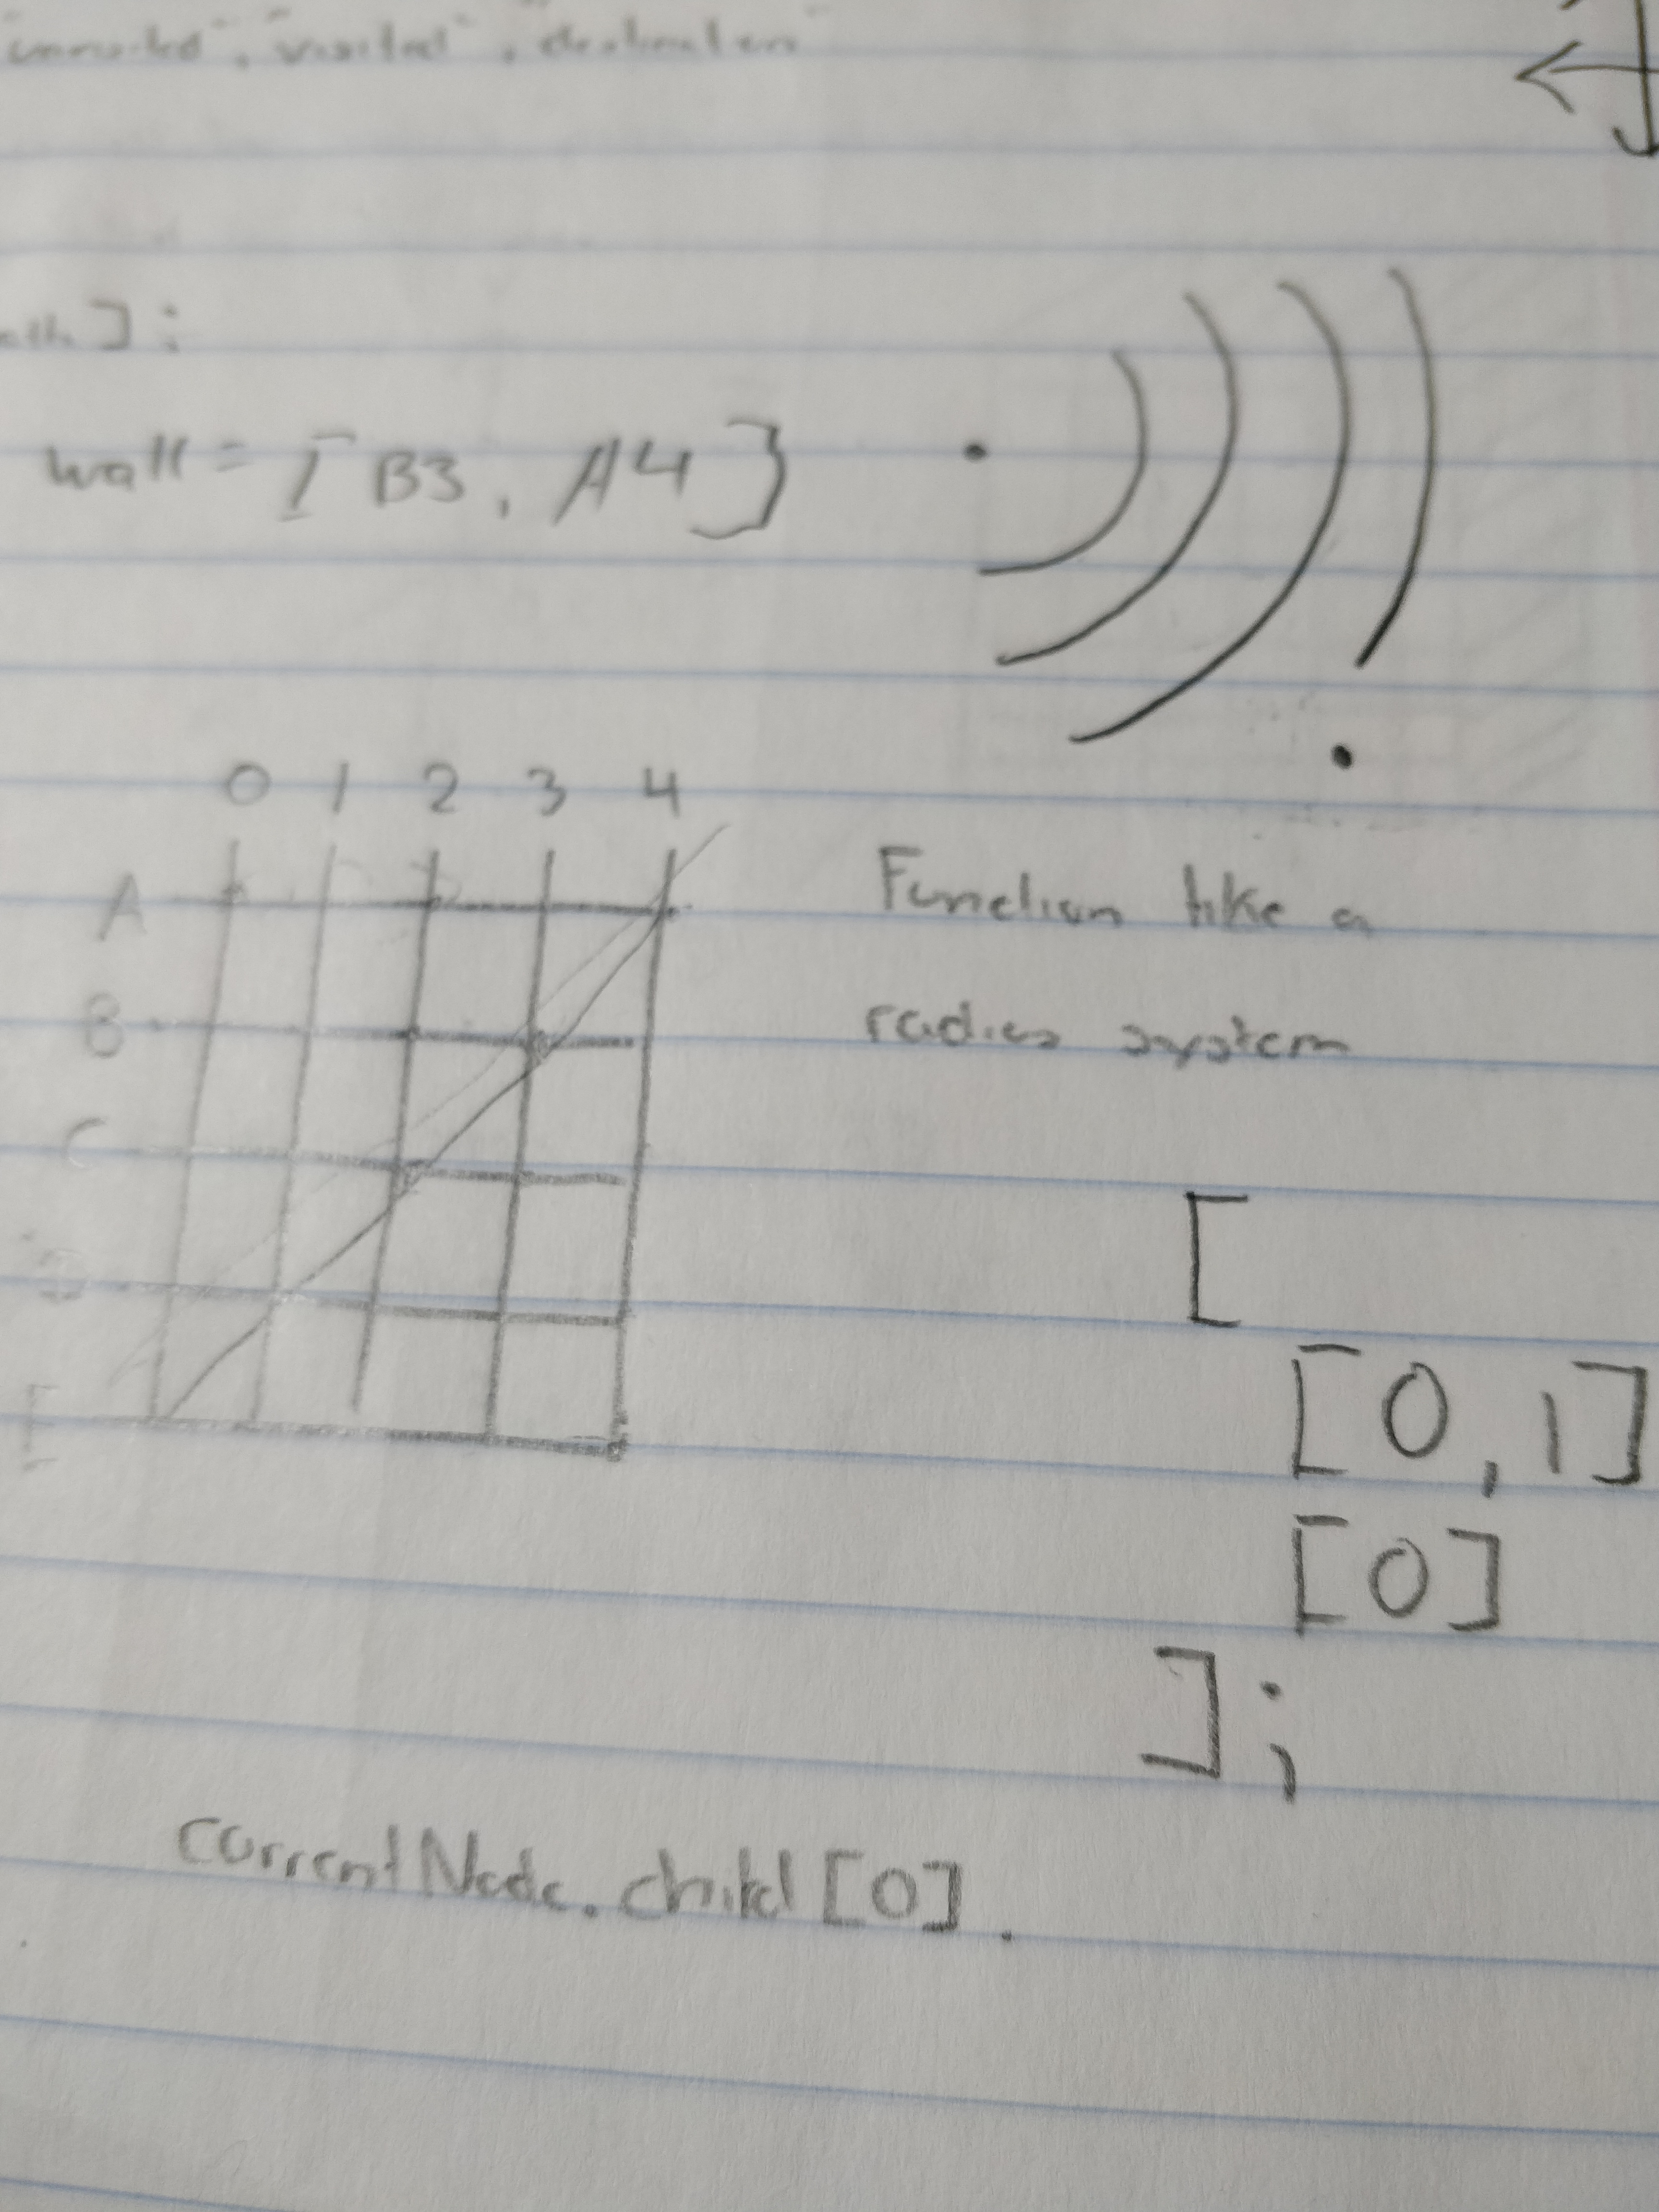 "visited", "destination"
];
wall = [B3, A4]
0 1 2 3 4
A
B
C
Function like a
radies system
[
[0,1]
[0]
];
currentNode.child[0].